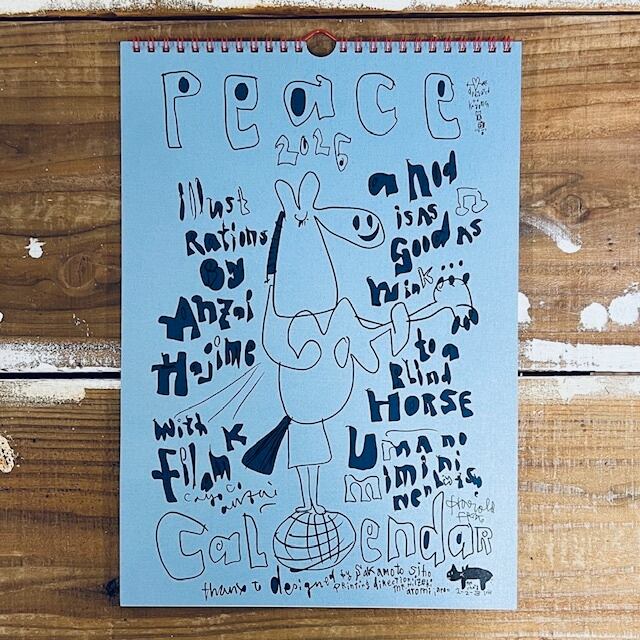 Peace
2026
illust
Rations
By
Anzai
Hajime
with
Film
a nod
is as
Good as
wink...
to a
Blind
HORSE
Umano
mimini
nenbutsu
Calendar
thanx to designed by Sakamoto Siho
printing direction